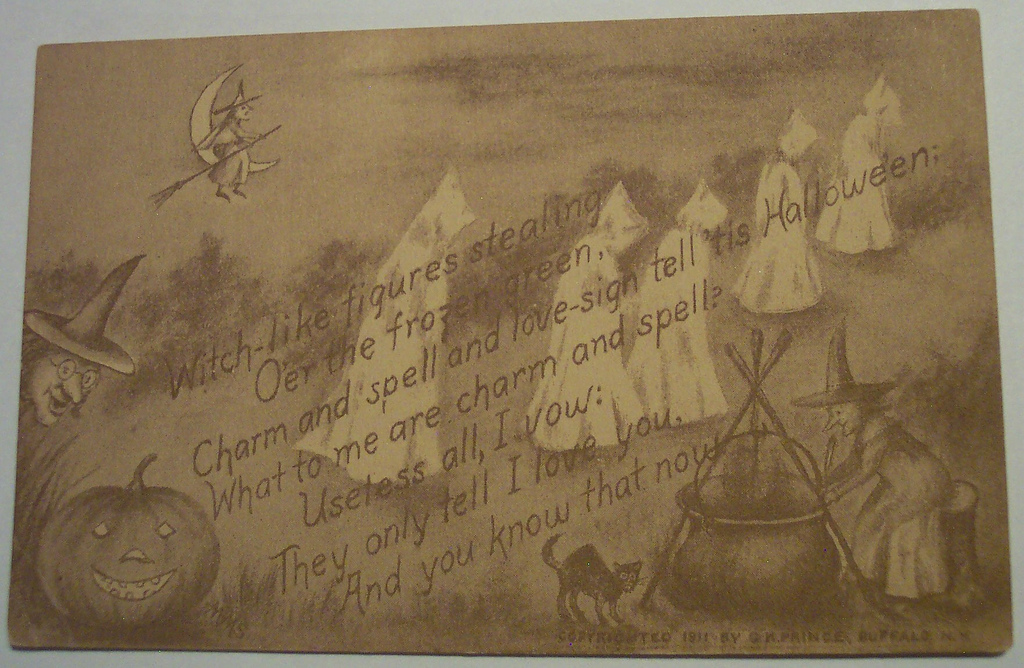 Witch-like figures stealing
O'er the frozen green,
Charm and spell and love-sign tell 'tis Hallowe'en;
What to me are charm and spell?
Useless all, I vow:
They only tell I love you,
And you know that now
COPYRIGHTED 1911 BY G.K. PRINCE, BUFFALO, N.Y.